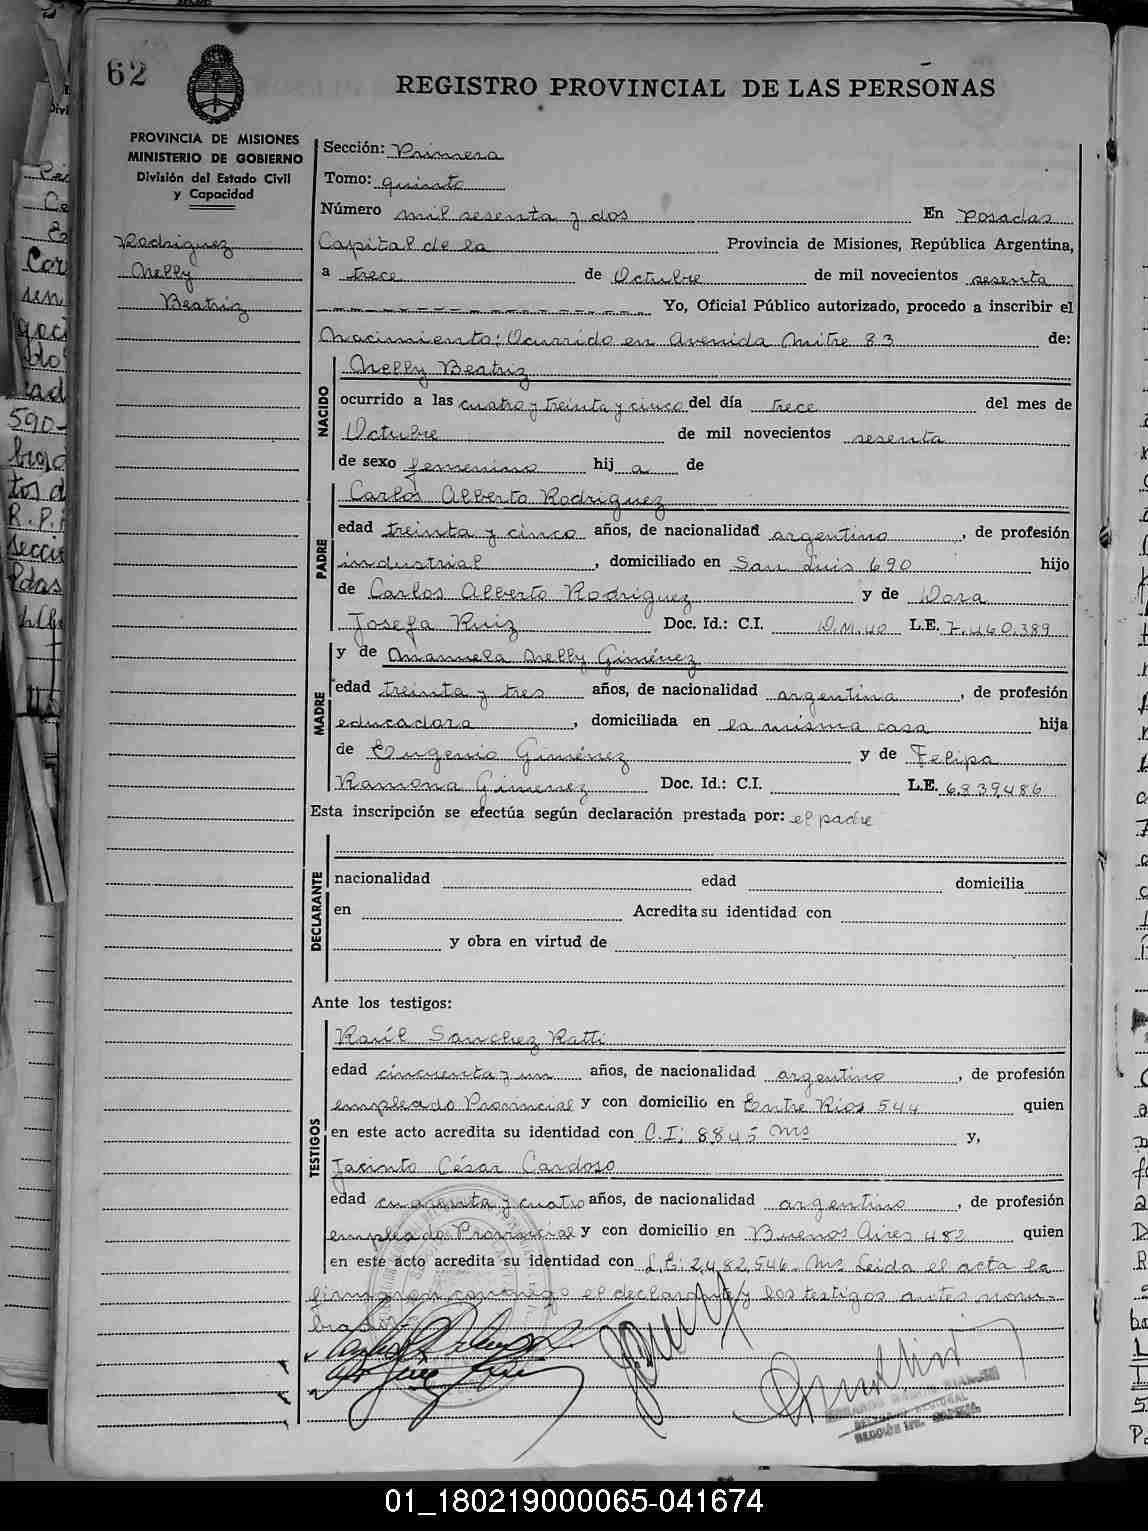 62
REGISTRO PROVINCIAL DE LAS PERSONAS
PROVINCIA DE MISIONES
MINISTERIO DE GOBIERNO
División del Estado Civil
y Capacidad
Rodriguez
Nelly
Beatriz
Sección: Primera
Tomo: quinto
Número mil sesenta y dos En Posadas
Capital de la Provincia de Misiones, República Argentina,
a trece de Octubre de mil novecientos sesenta
Yo, Oficial Público autorizado, procedo a inscribir el
Nacimiento: Ocurrido en Avenida Mitre 83 de:
NACIDO
Nelly Beatriz
ocurrido a las cuatro y treinta y cinco del día trece del mes de
Octubre de mil novecientos sesenta
de sexo femenino hij a de
PADRE
Carlos Alberto Rodriguez
edad treinta y cinco años, de nacionalidad argentino, de profesión
industrial, domiciliado en San Luis 690 hijo
de Carlos Alberto Rodriguez y de Dora
Josefa Ruiz Doc. Id.: C.I. D.M. 40 L.E. 7.460.389
MADRE
y de Manuela Nelly Giménez
edad treinta y tres años, de nacionalidad argentina, de profesión
educadora, domiciliada en la misma casa hija
de Eugenio Giménez y de Felipa
Ramona Gimenez Doc. Id.: C.I. L.E. 6839486
Esta inscripción se efectúa según declaración prestada por: el padre
DECLARANTE
nacionalidad edad domicilia
en Acredita su identidad con
y obra en virtud de
Ante los testigos:
TESTIGOS
Raúl Sanchez Ratti
edad cincuenta y un años, de nacionalidad argentino, de profesión
empleado Provincial y con domicilio en Entre Rios 544 quien
en este acto acredita su identidad con C.I: 8845 Ms y,
Jacinto César Cardoso
edad cuarenta y cuatro años, de nacionalidad argentino, de profesión
empleado Provincial y con domicilio en Buenos Aires 482 quien
en este acto acredita su identidad con L.E: 2.482.546. Ms Leida el acta la
firman conmigo el declarante y los testigos antes nom-
brados
01_180219000065-041674